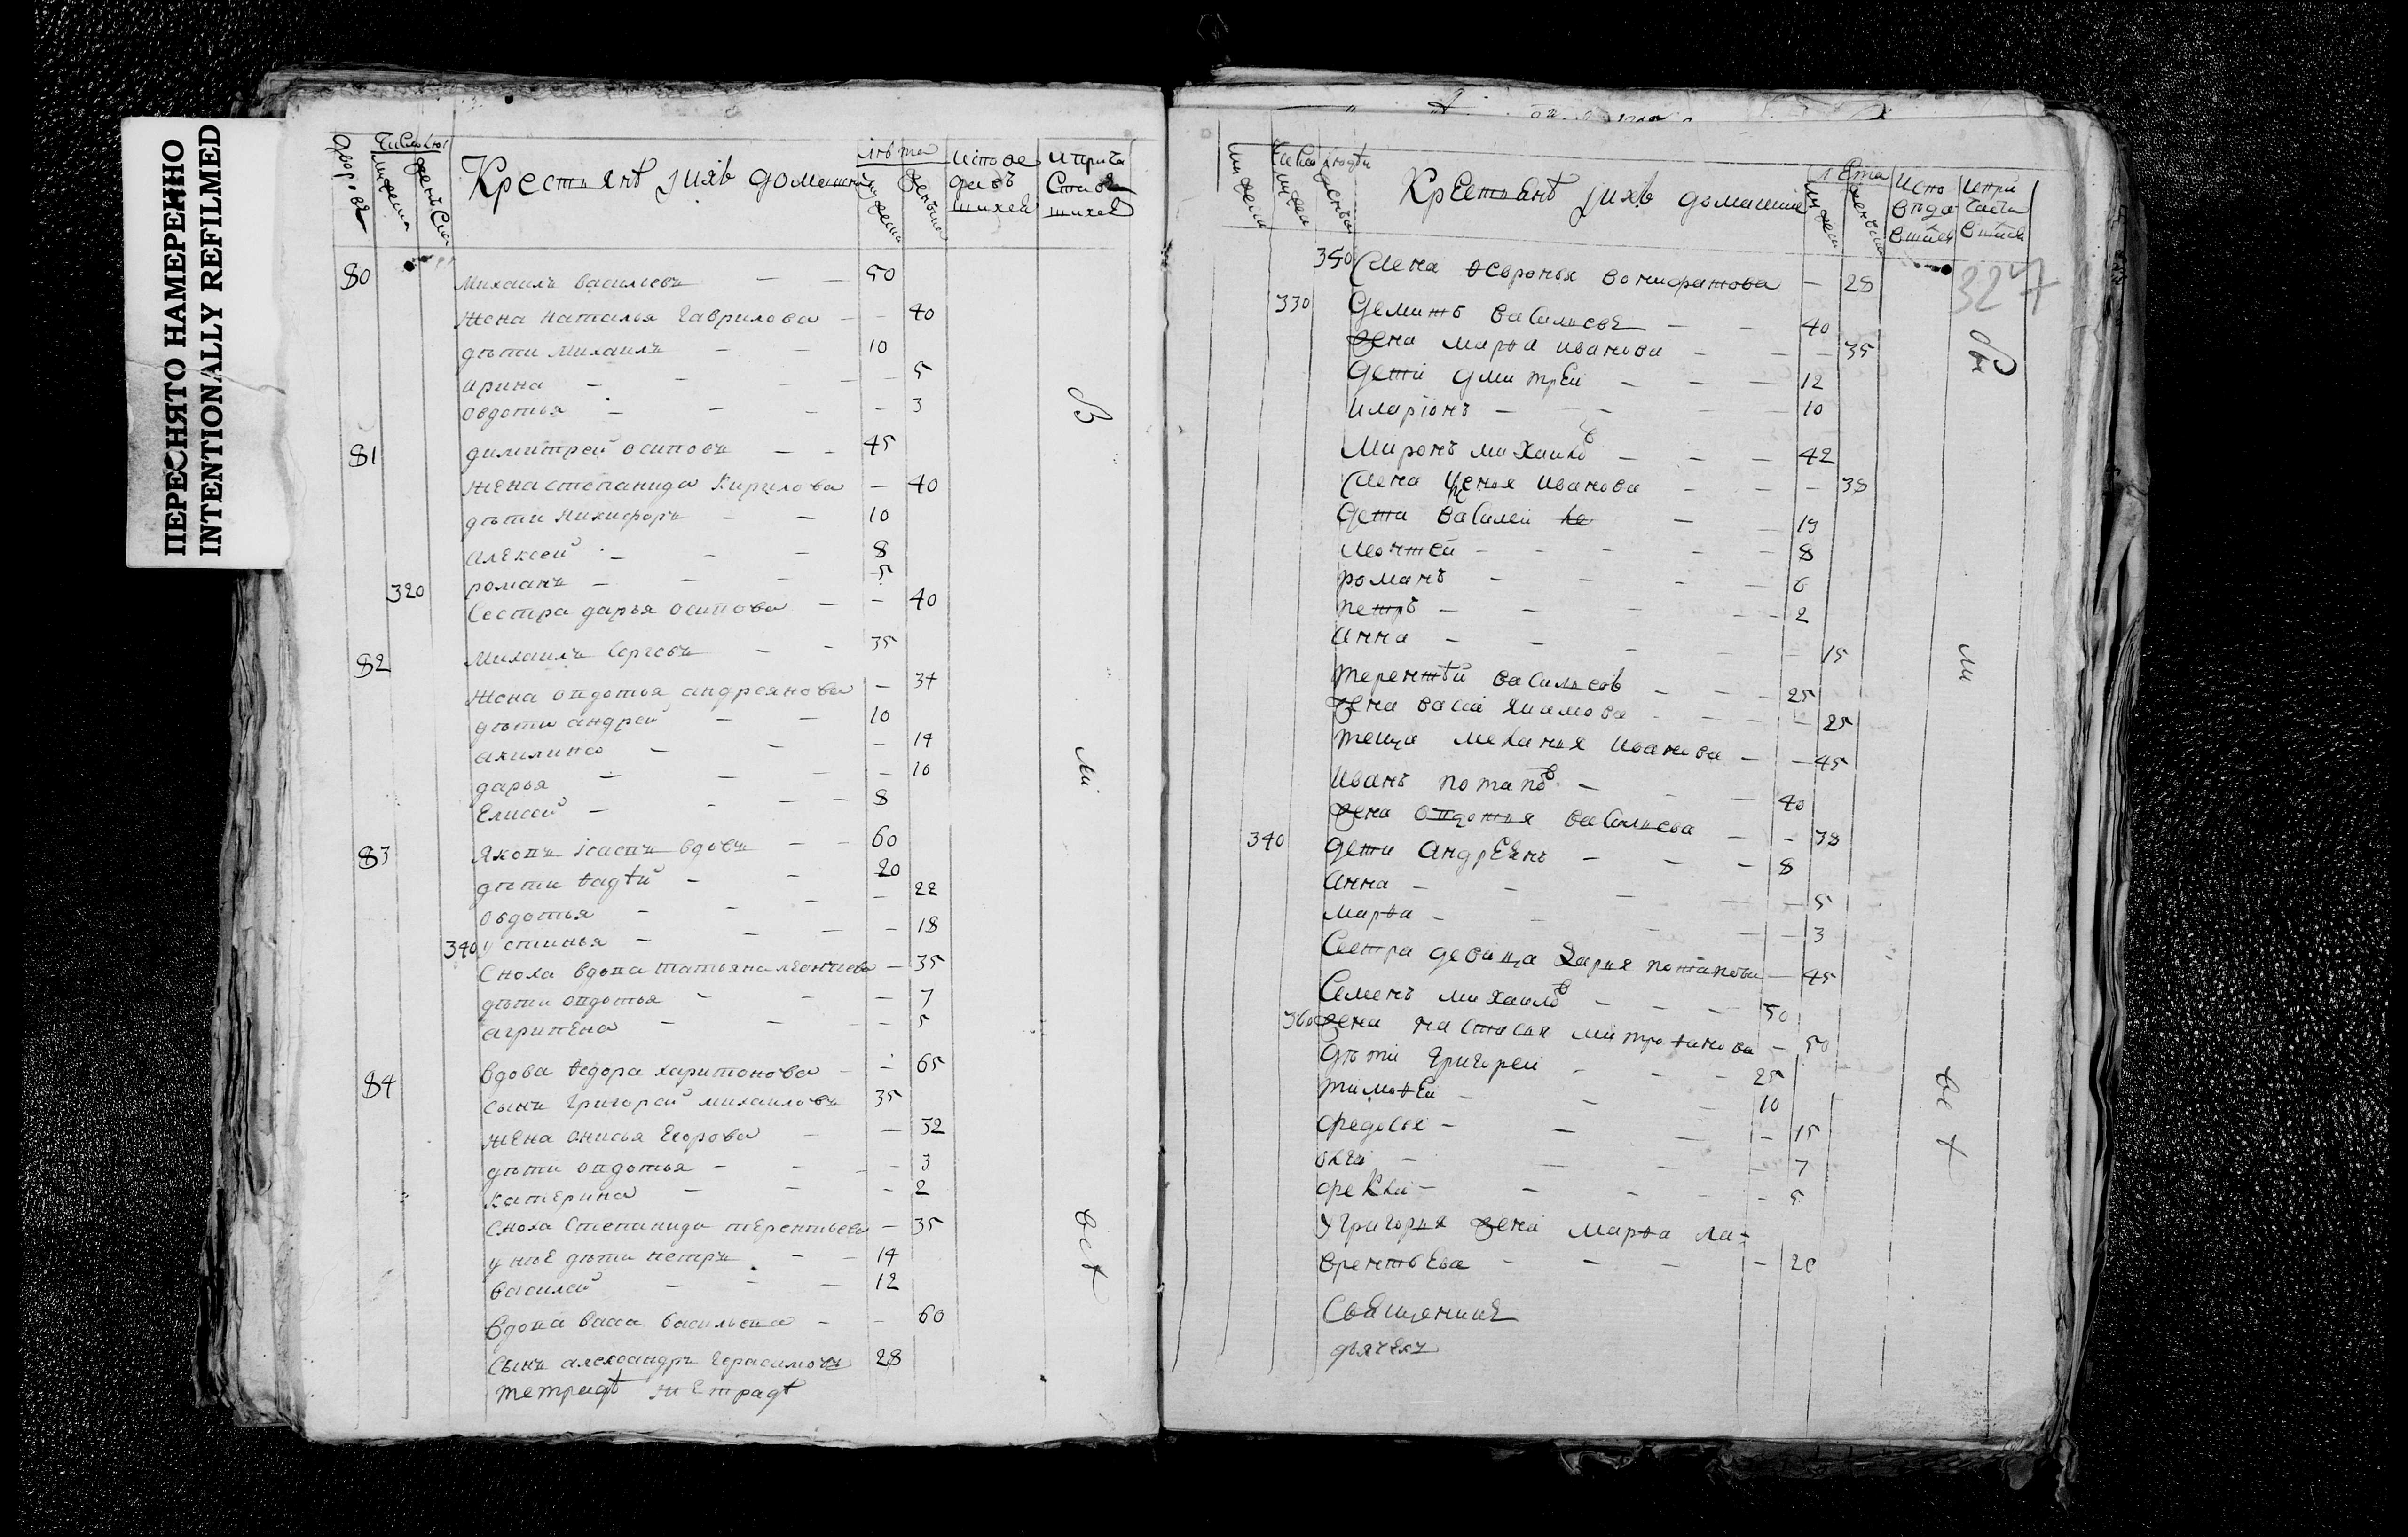 ПЕРЕСНЯТО НАМЕРЕННО
INTENTIONALLY REFILMED
Дворовъ
мужеска
женска
Крестьянѣ ихъ домашни
лѣта
мужеска
женьска
испове
давъ
шихся
и прича
стив
шихся
80 михаилъ васильевъ — — 50
жена наталья гаврилова — — 40
дѣти михаилъ — — 10
ирина — — — — 5
овдотья — — — — 3
81 димитрей осиповъ — — 45
жена степанида кирилова — 40
дѣти никифоръ — — 10
алексей — — — 8
романъ — — — 5
320 сестра дарья осипова — — 40
82 михаилъ сергевъ — — 35
жена овдотья андреянова — 34
дѣти андрей — — 10
акилина — — — 14
дарья — — — — 10
елисей — — — — 8
83 яковъ вдовъ — — 60
дѣти ѳадѣй — — 20
овдотья — — — — 22
340 устинья — — — — 18
сноха вдова татьяна леонтиева — 35
дѣти овдотья — — — 7
агрипена — — — 5
84 вдова ѳедора харитонова — — 65
сынъ григорей михаиловъ 35
жена онисья егорова — — 32
дѣти овдотья — — — — 3
катерина — — — 2
сноха степанида терентьева — 35
у нѣе дѣти петръ — — 14
василей — — — 12
вдова васса васильева — — 60
сынъ александръ герасимовъ 28
тетрадѣ тетрадѣ
в
ми
всѣ
Крестьянѣ ихъ домашние
лета
испо
веда
вшихся
и при
часта
вшихся
327
350 жена ѳевронья вонифатова — 28
330 Дементъ васильевъ — — 40
жена марѳа иванова — — — 35
Дети дмитрей — — — 12
иларионъ — — — 10
миронъ михаилов — — — 42
жена иванова — — — 38
дети василей — — 19
леонтей — — — — — 8
романъ — — — — 6
петръ — — — — — 2
анна — — — — — 15
терентѣй васильевъ — — — 25
жена — — — — 25
теща меланья иванова — — 45
иванъ потаповъ — — — 40
жена овдотья васильева — — 38
340 дети андреянъ — — — 8
анна — — — — 5
марѳа — — — — 3
сестра девица дарья потапова — 45
семенъ михаиловъ — — — 50
360 жена настасья митроѳанова — 50
дѣти григорей — — — 25
тимоѳей — — — 10
федосья — — — — 15
— — — — 7
фекла — — — — 5
у григорья жена марѳа ла-
врентьева — — — — 20
священникъ
дьячекъ
ми